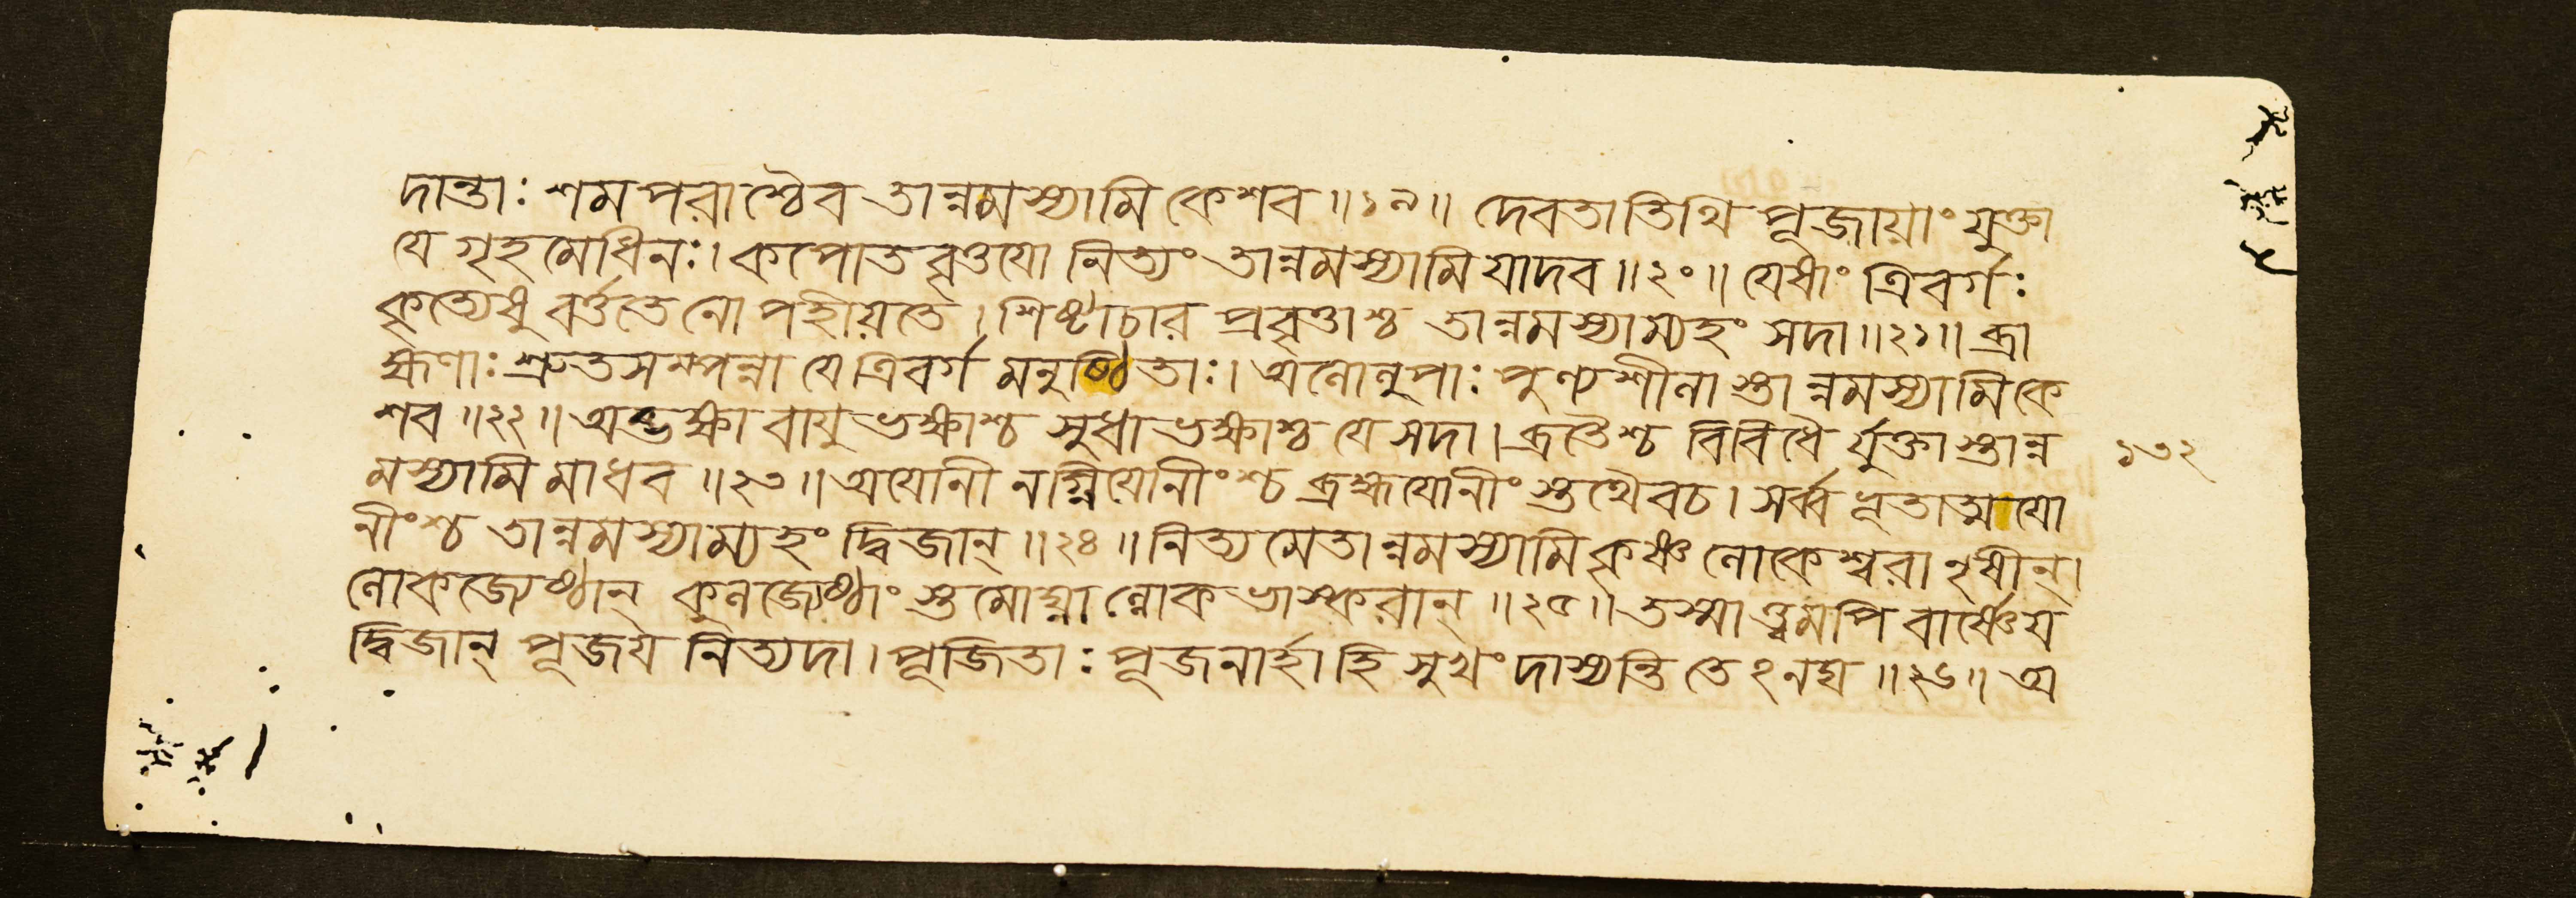 দান্তাঃ শমপরাশ্চৈব তান্নমস্যামি কেশব ॥১৯॥ দেবতাতিথি পূজায়াং যুক্তা
যে গৃহমেধিনঃ। কপোতবৃত্তয়ো নিত্যং তান্নমস্যামি যাদব ॥২০॥ যেষাং ত্রিবর্গঃ
কৃত্যেষু বর্ত্ততে নোপহীয়তে। শিষ্টাচার প্রবৃত্তাশ্চ তান্নমস্যাম্যহং সদা ॥২১॥ ব্রা
হ্মণাঃ শ্রুতসম্পন্না যে ত্রিবর্গ মনুষ্ঠিতাঃ। অলোলুপাঃ পুণ্যশীলা স্তান্নমস্যামি কে
শব ॥২২॥ অব্ভক্ষা বায়ুভক্ষাশ্চ সুধাভক্ষাশ্চ যে সদা। ব্রতৈশ্চ বিবিধৈ র্যুক্তা স্তান্ন
মস্যামি মাধব ॥২৩॥ অযোনী নগ্নিযোনীংশ্চ ব্রহ্মযোনীং স্তথৈবচ। সর্ব্বভূতাত্মযো
নীংশ্চ তান্নমস্যাম্যহং দ্বিজান্ ॥২৪॥ নিত্যমেতান্নমস্যামি কৃষ্ণ লোকেশ্বরা ঽষীন্।
লোকজ্যেষ্ঠান্ কুলজ্যেষ্ঠাং স্তমোঘ্নান্লোকভাস্করান্ ॥২৫॥ তস্মাত্ত্বমপি বার্ষ্ণেয়
দ্বিজান্ পূজয় নিত্যদা। পূজিতাঃ পূজনার্হা হি সুখং দাস্যন্তি তেঽনঘ ॥২৬॥ অ
১৩২